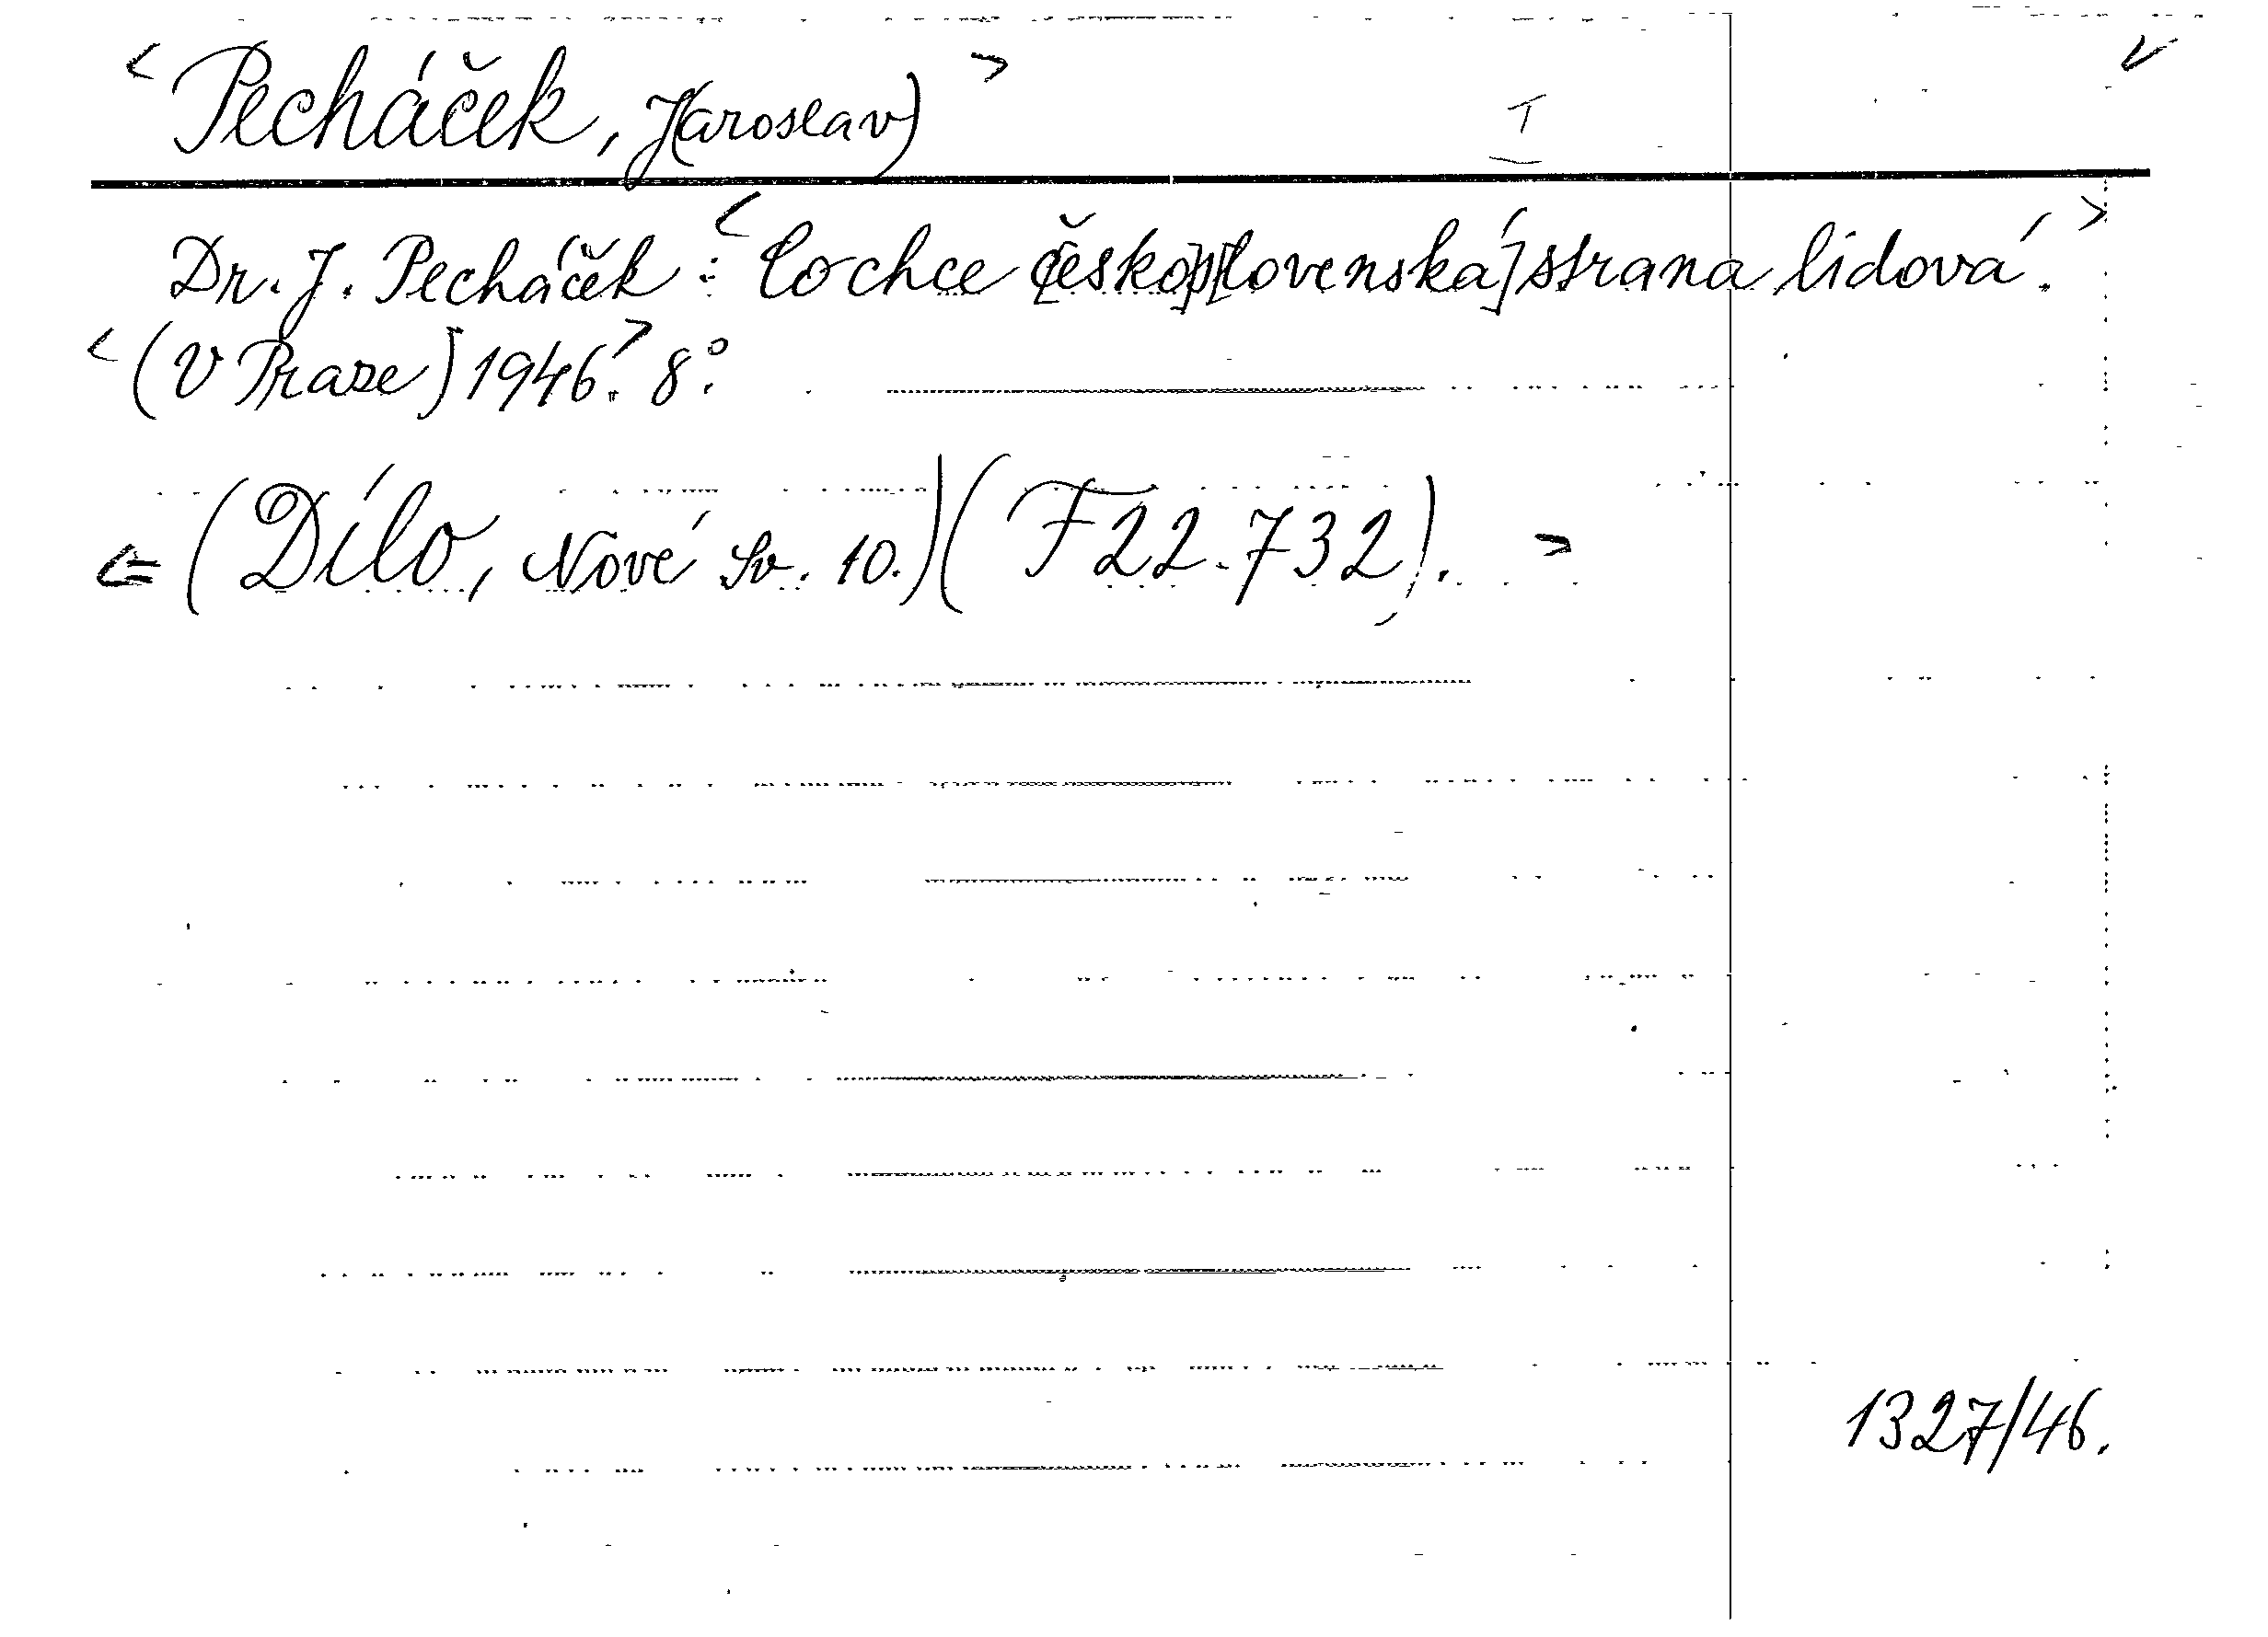 < Pecháček, J(aroslav) > I V
Dr. J. Pecháček: < Co chce česko[slovenská] strana lidová. >
< (V Praze) 1946. > 8°.
(Dílo, Nové Sv. 10.) (F 22.732). >
1327/46.